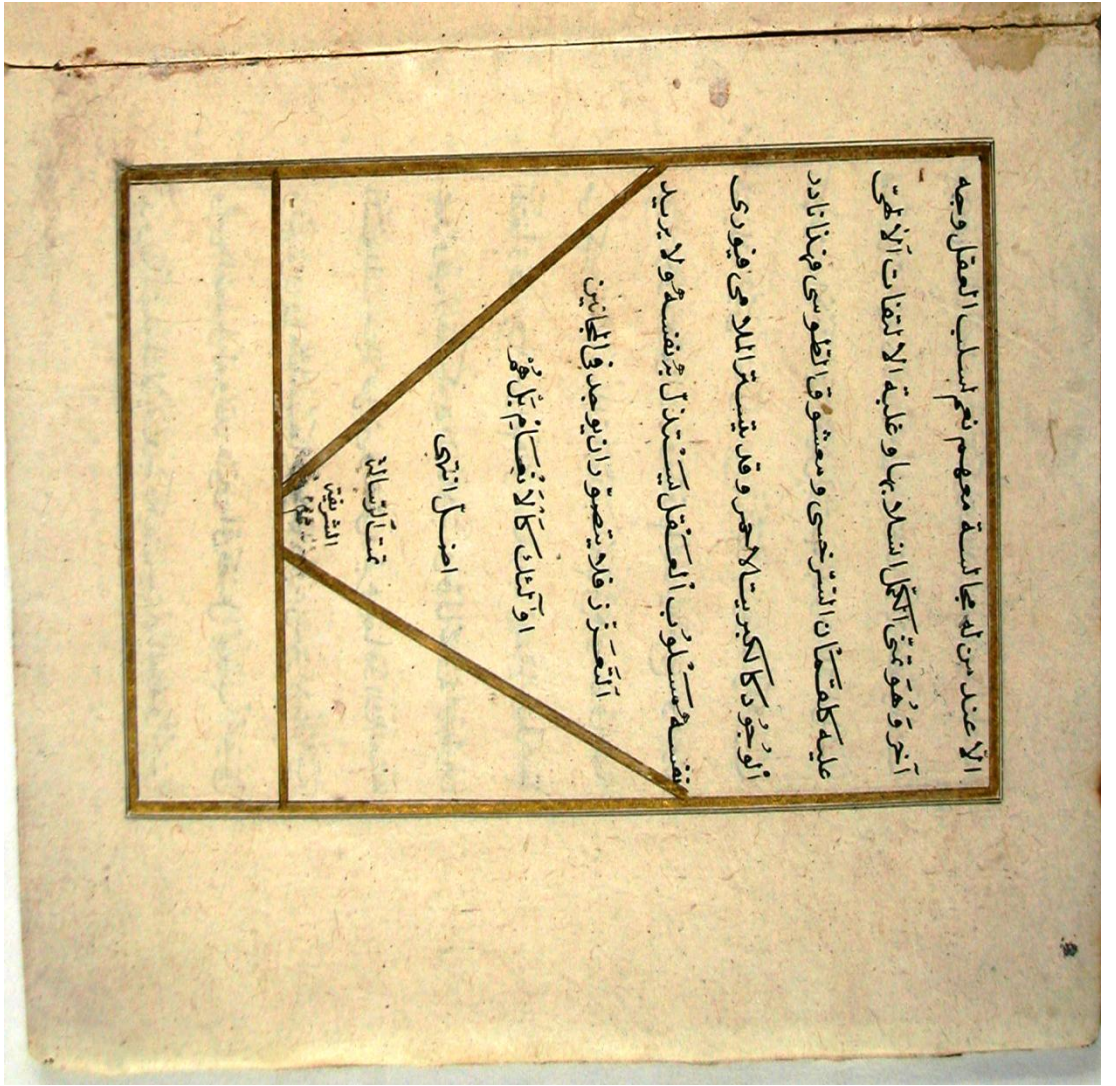 الّا عند من له مجالسة معهم نعم لسلب العقل وجه
آخر وَهُوَ تمنّى الكمّل انسلابها وغلبة الالتفات الآلهىّ
عليه كلقمَان السّرخسى ومعشوق الطّوسى فهذا نادر
الوُجُود كالكبريت الاحمر وقد يتستّر الملامى فيورى
نفسهُ مَسْلوُب العَقل ليَسْتذلّ بنفسهُ ولا يريد
التعَزّز فلا يتصوّر ان يوجد فى المجانين
اولٓئك كَالاَنْعَامِ بَلْ هُمْ
اضلّ انتهى
تمت الرّسالة
الشريفة